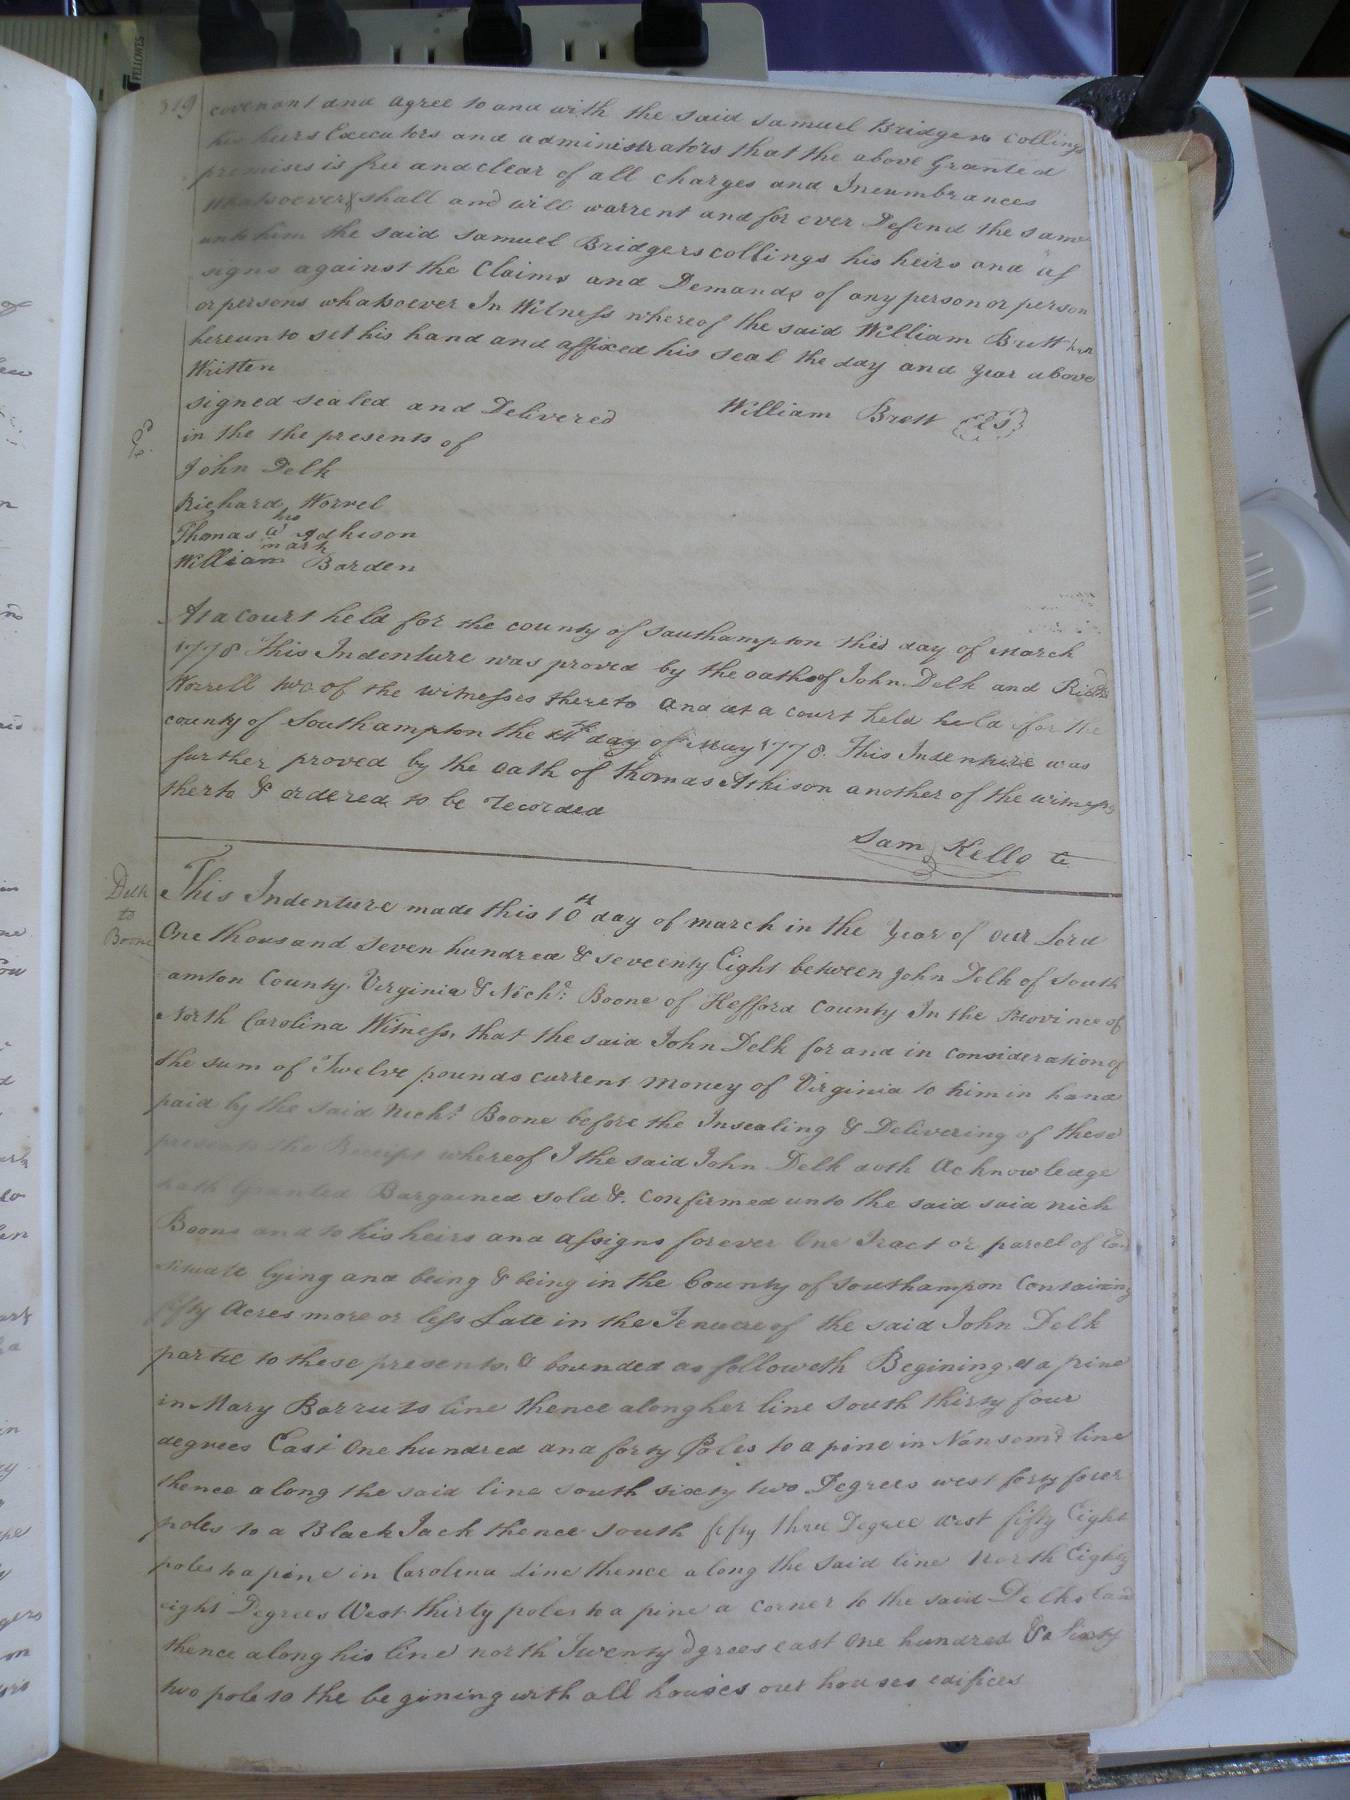 FELLOWES
319
covenant and agree to and with the said Samuel Bridgers Collings
his heirs Executors and administrators that the above Granted
premises is free and clear of all charges and Incumbrances
whatsoever & shall and will warrent and for ever Defend the same
unto him the said Samuel Bridgers collings his heirs and as
signs against the Claims and Demands of any person or person
or persons whatsoever In Witness whereof the said William Brett hath
hereunto set his hand and affixed his seal the day and year above
Written
signed sealed and Delivered William Brett Ls
in the the presents of
John Delk
Richard Worrel
his
Thomas Adkison
mark
William Barden
At a court held for the county of Southampton this day of March
1778 This Indenture was proved by the oaths of John Delk and Richd
Worrell two of the witnesses thereto and at a court held held for the
county of Southampton the 14th day of May 1778. This Indenture was
further proved by the oath of Thomas Atkison another of the witnesses
therto & ordered to be recorded
Sam Kello
Delk
to
Boone
This Indenture made this 10th day of march in the Year of our Lord
One thousand seven hundred & seveenty Eight between John Delk of South
amton County. Virginia & Nichs: Boone of Hefford County In the Provinceof
North Carolina Witness, that the said John Delk for and in consideration of
the sum of Twelve pounds current money of Virginia to him in hand
paid by the said Nichs: Boone before the Insealing & Delivering of these
presents the Receipt whereof I the said John Delk doth Acknowledge
hath Granted Bargained sold &. Confirmed unto the said said nich
Boone and to his heirs and assigns forever One Tract or parcel of land
situate lying and being & being in the County of Southampon Containing
fifty Acres more or less Late in the Tenure of the said John Delk
partie to these presents & bounded as followeth Begining at a pine
in Mary Barruts line thence along her line South thirty four
degrees East One hundred and forty Poles to a pine in Nansomd line
thence along the said line south sixty two Degrees west forty four
poles to a Black Jack thence south fifty three Degree west fifty Eight
poles to a pine in Carolina Line thence along the said line North Eighty
eight Degrees West thirty poles to a pine a corner to the said Delks land
thence along his line north Twenty dgrees east One hundred & Sixty
two pole to the begining with all houses out houses edifices